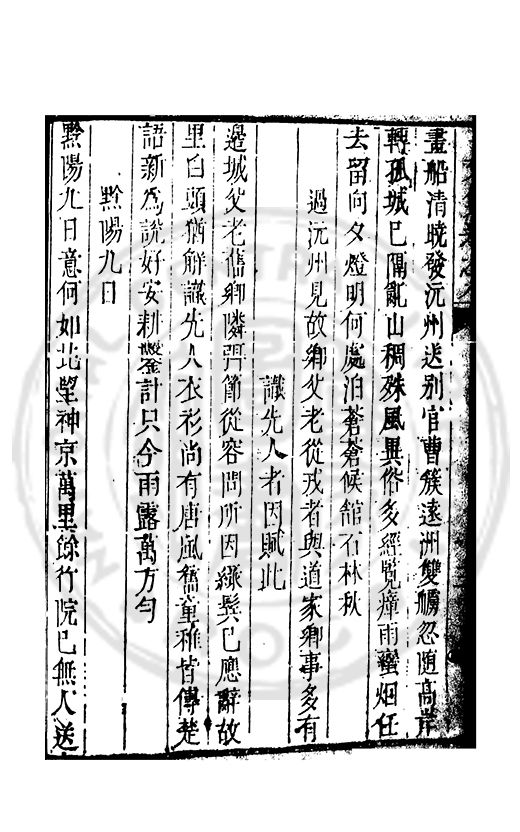 畫船清曉發沅州送別官曹簇遠洲雙艣忽随高岸
轉孤城已隔亂山稠殊風異俗多經覧瘴雨蠻烟任
去留向夕燈明何處泊蒼蒼候舘石林秋
過沅州見故鄉父老從戎者與道家鄉事多有
識先人者因賦此
邊城父老舊鄉隣弭節從容問所因緑鬂已應辭故
里白頭猶觧識先人衣衫尚有唐風舊童稚皆傳楚
語新為說好安耕鑿計只今雨露萬方勻
黔陽九日
黔陽九日意何如北望神京萬里餘竹院已無人送